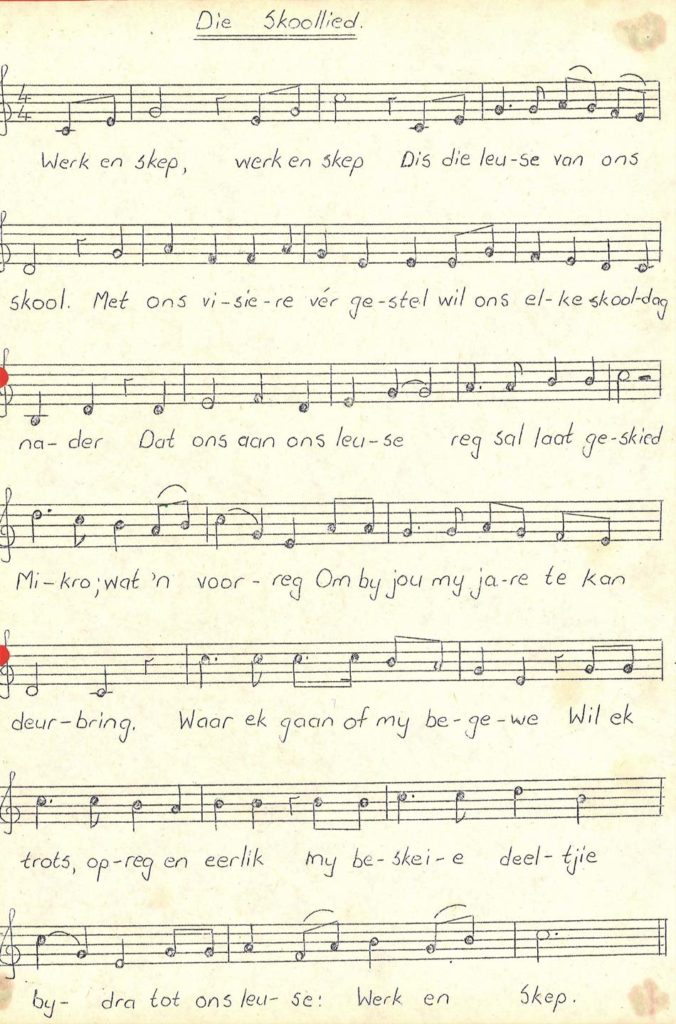 Die Skoollied.
4
4
Werk en skep, werk en skep Dis die leu-se van ons
skool. Met ons vi-sie-re vér ge-stel wil ons el-ke skool-dag
na-der Dat ons aan ons leu-se reg sal laat ge-skied
Mi-kro; wat 'n voor-reg Om by jou my ja-re te kan
deur-bring. Waar ek gaan of my be-ge-we Wil ek
trots, op-reg en eerlik my be-skei-e deel-tjie
by- dra tot ons leu-se: Werk en Skep.